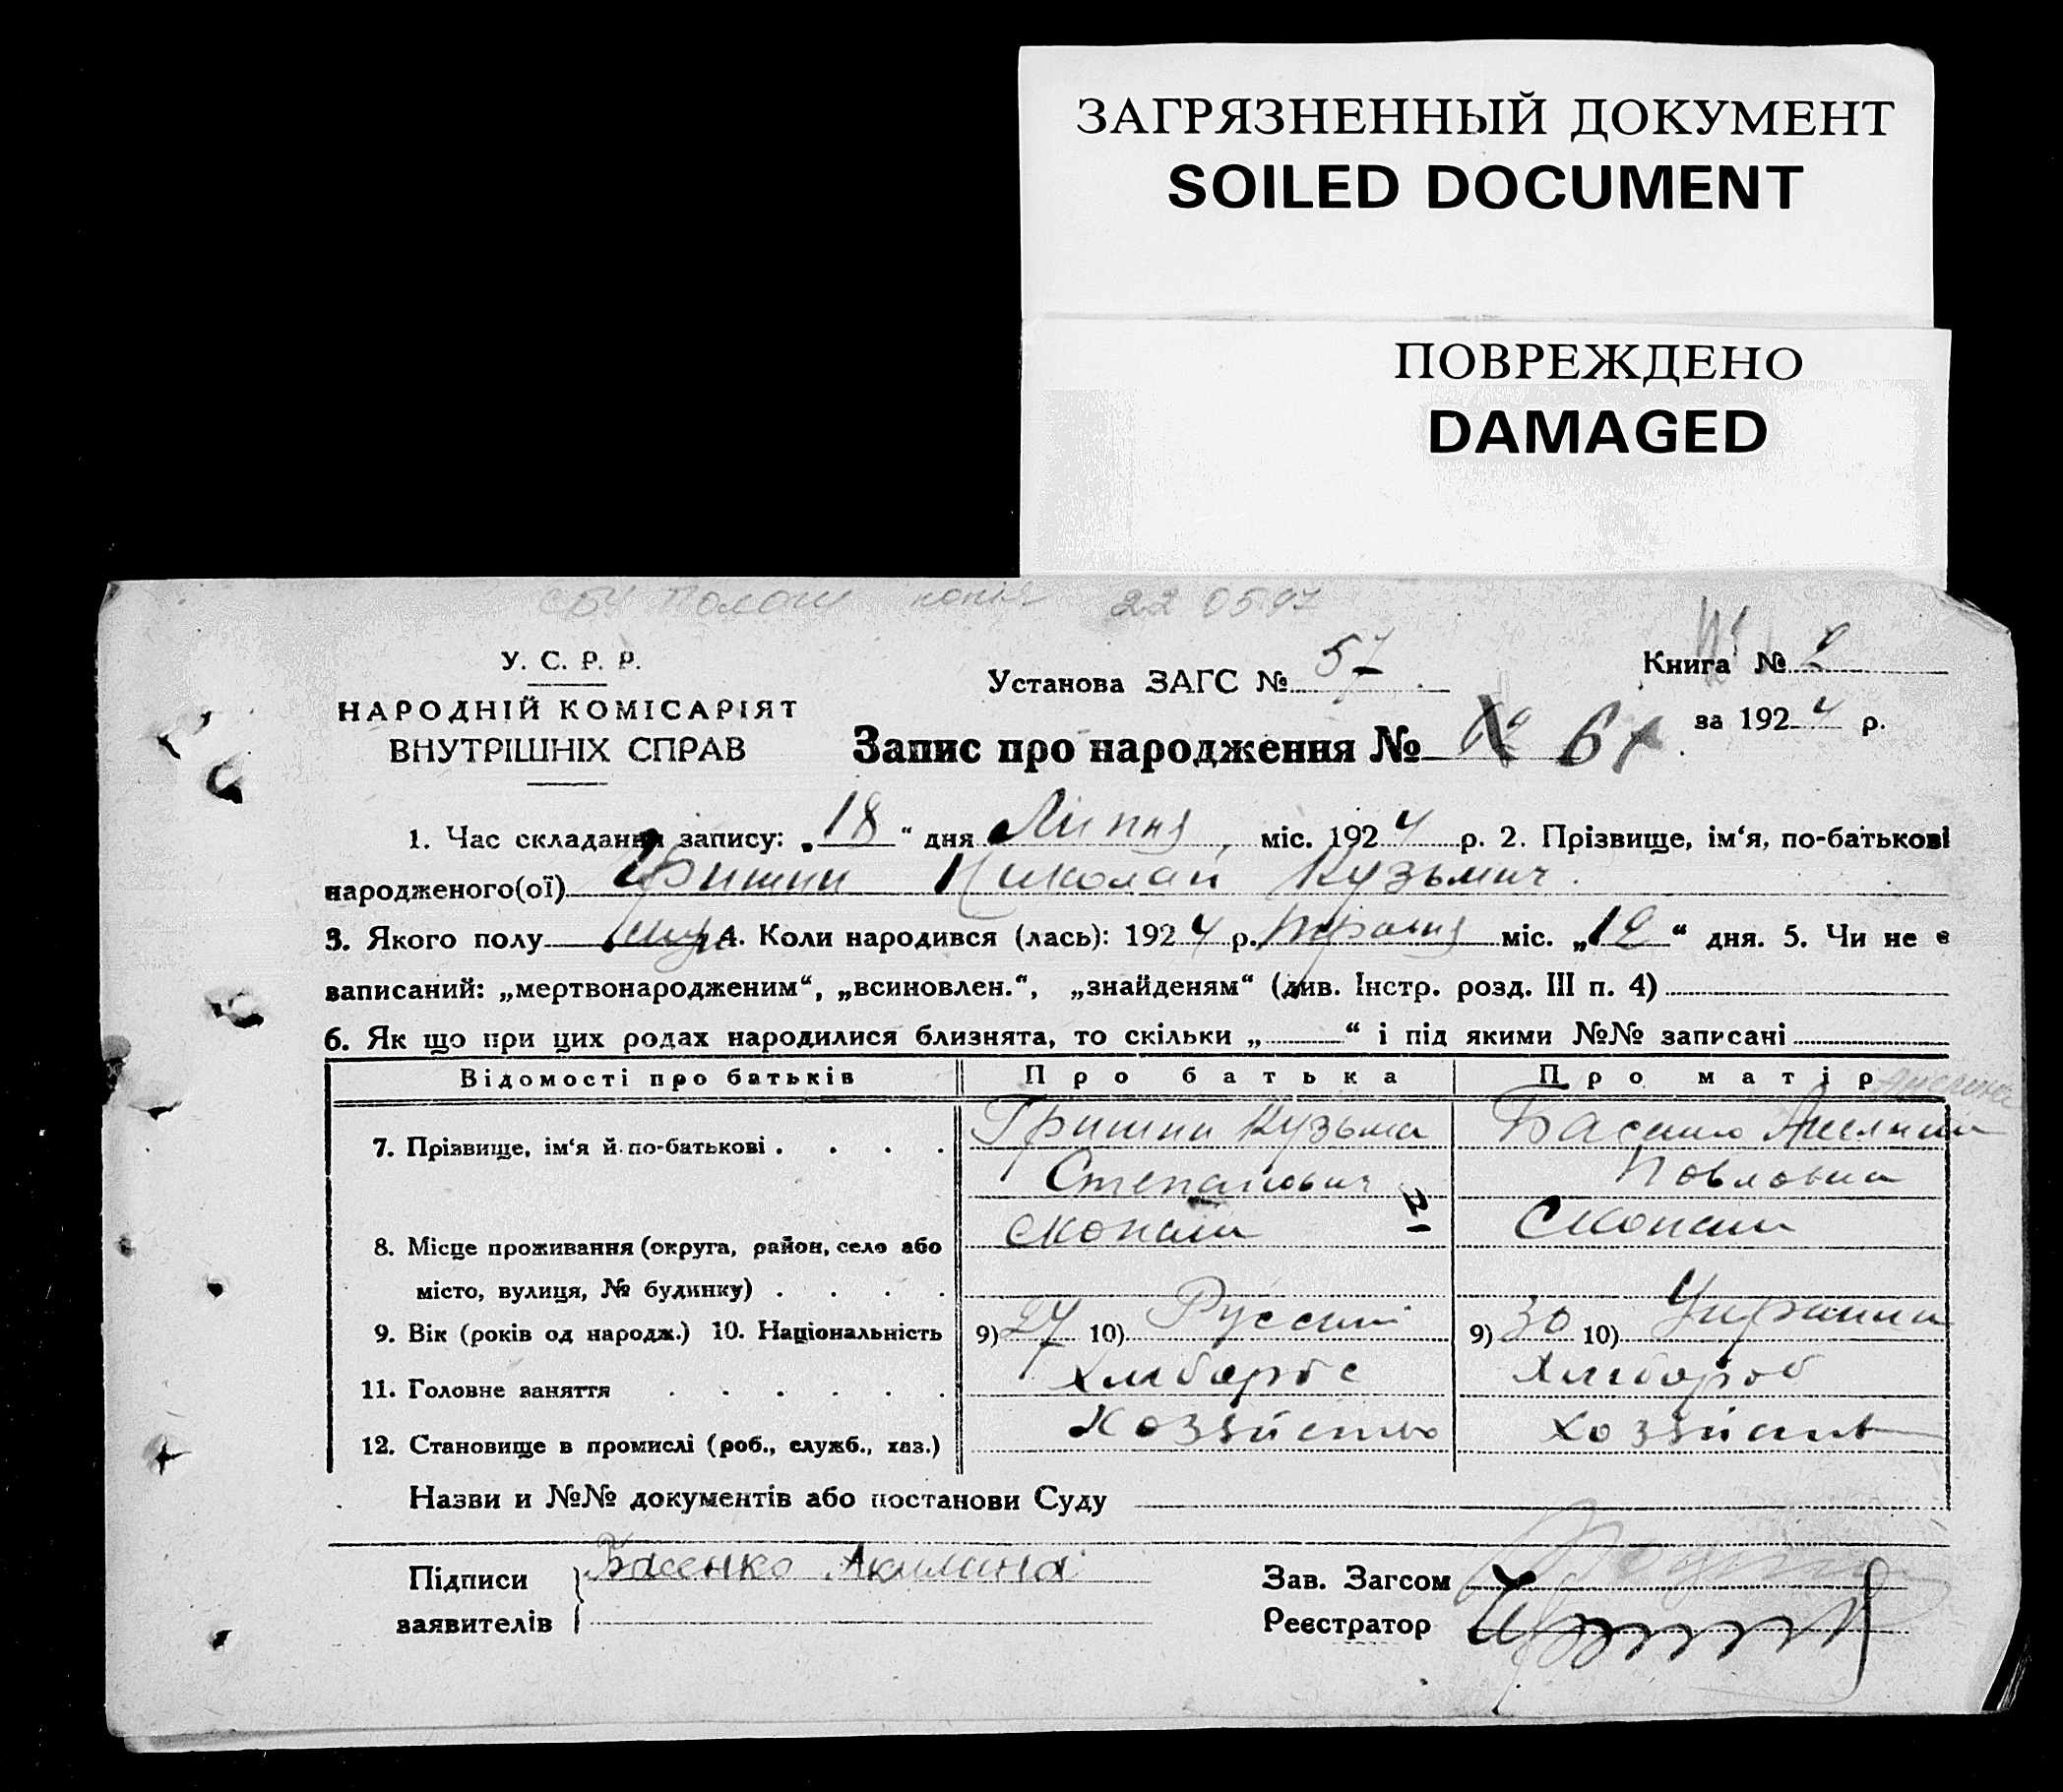 ЗАГРЯЗНЕННЫЙ ДОКУМЕНТ
SOILED DOCUMENT
ПОВРЕЖДЕНО
DAMAGED
копія 22 05 97
У. С. Р. Р.
НАРОДНІЙ КОМІСАРІЯТ
ВНУТРІШНІХ СПРАВ
Установа ЗАГС № 57
Книга № 2
за 1924 р.
Запис про народження № 61
1. Час складання запису: „18“ дня Липня міс. 1924 р. 2. Прізвище, ім‘я, по-батькові
народженого(ої) Гришин Николай Кузьмич
3. Якого полу муж 4. Коли народився (лась): 1924 р. міс. „12“ дня. 5. Чи не є
записаний: „мертвонародженим“, „всиновлен.“, „знайденям“ (див. Інстр. розд. III п. 4)
6. Як що при цих родах народилися близнята, то скільки „ “ і під якими №№ записані
Відомості про батьків Про батька Про матір
7. Прізвище, ім‘я й по-батькові . . . .
Гришин Кузьма
Степанович
Павловна
8. Місце проживання (округа, район, село або
місто, вулиця, № будинку) . . . .
Скопали
Скопали
9. Вік (років од народж.) 10. Національність 9) 27 10) Русский 9) 30 10)
11. Головне заняття . . . . . . Хлибороб
12. Становище в промислі (роб., служб., хаз.)
Назви и №№ документів або постанови Суду
Підписи
заявителів
Басенко Акилина
Зав. Загсом
Реєстратор